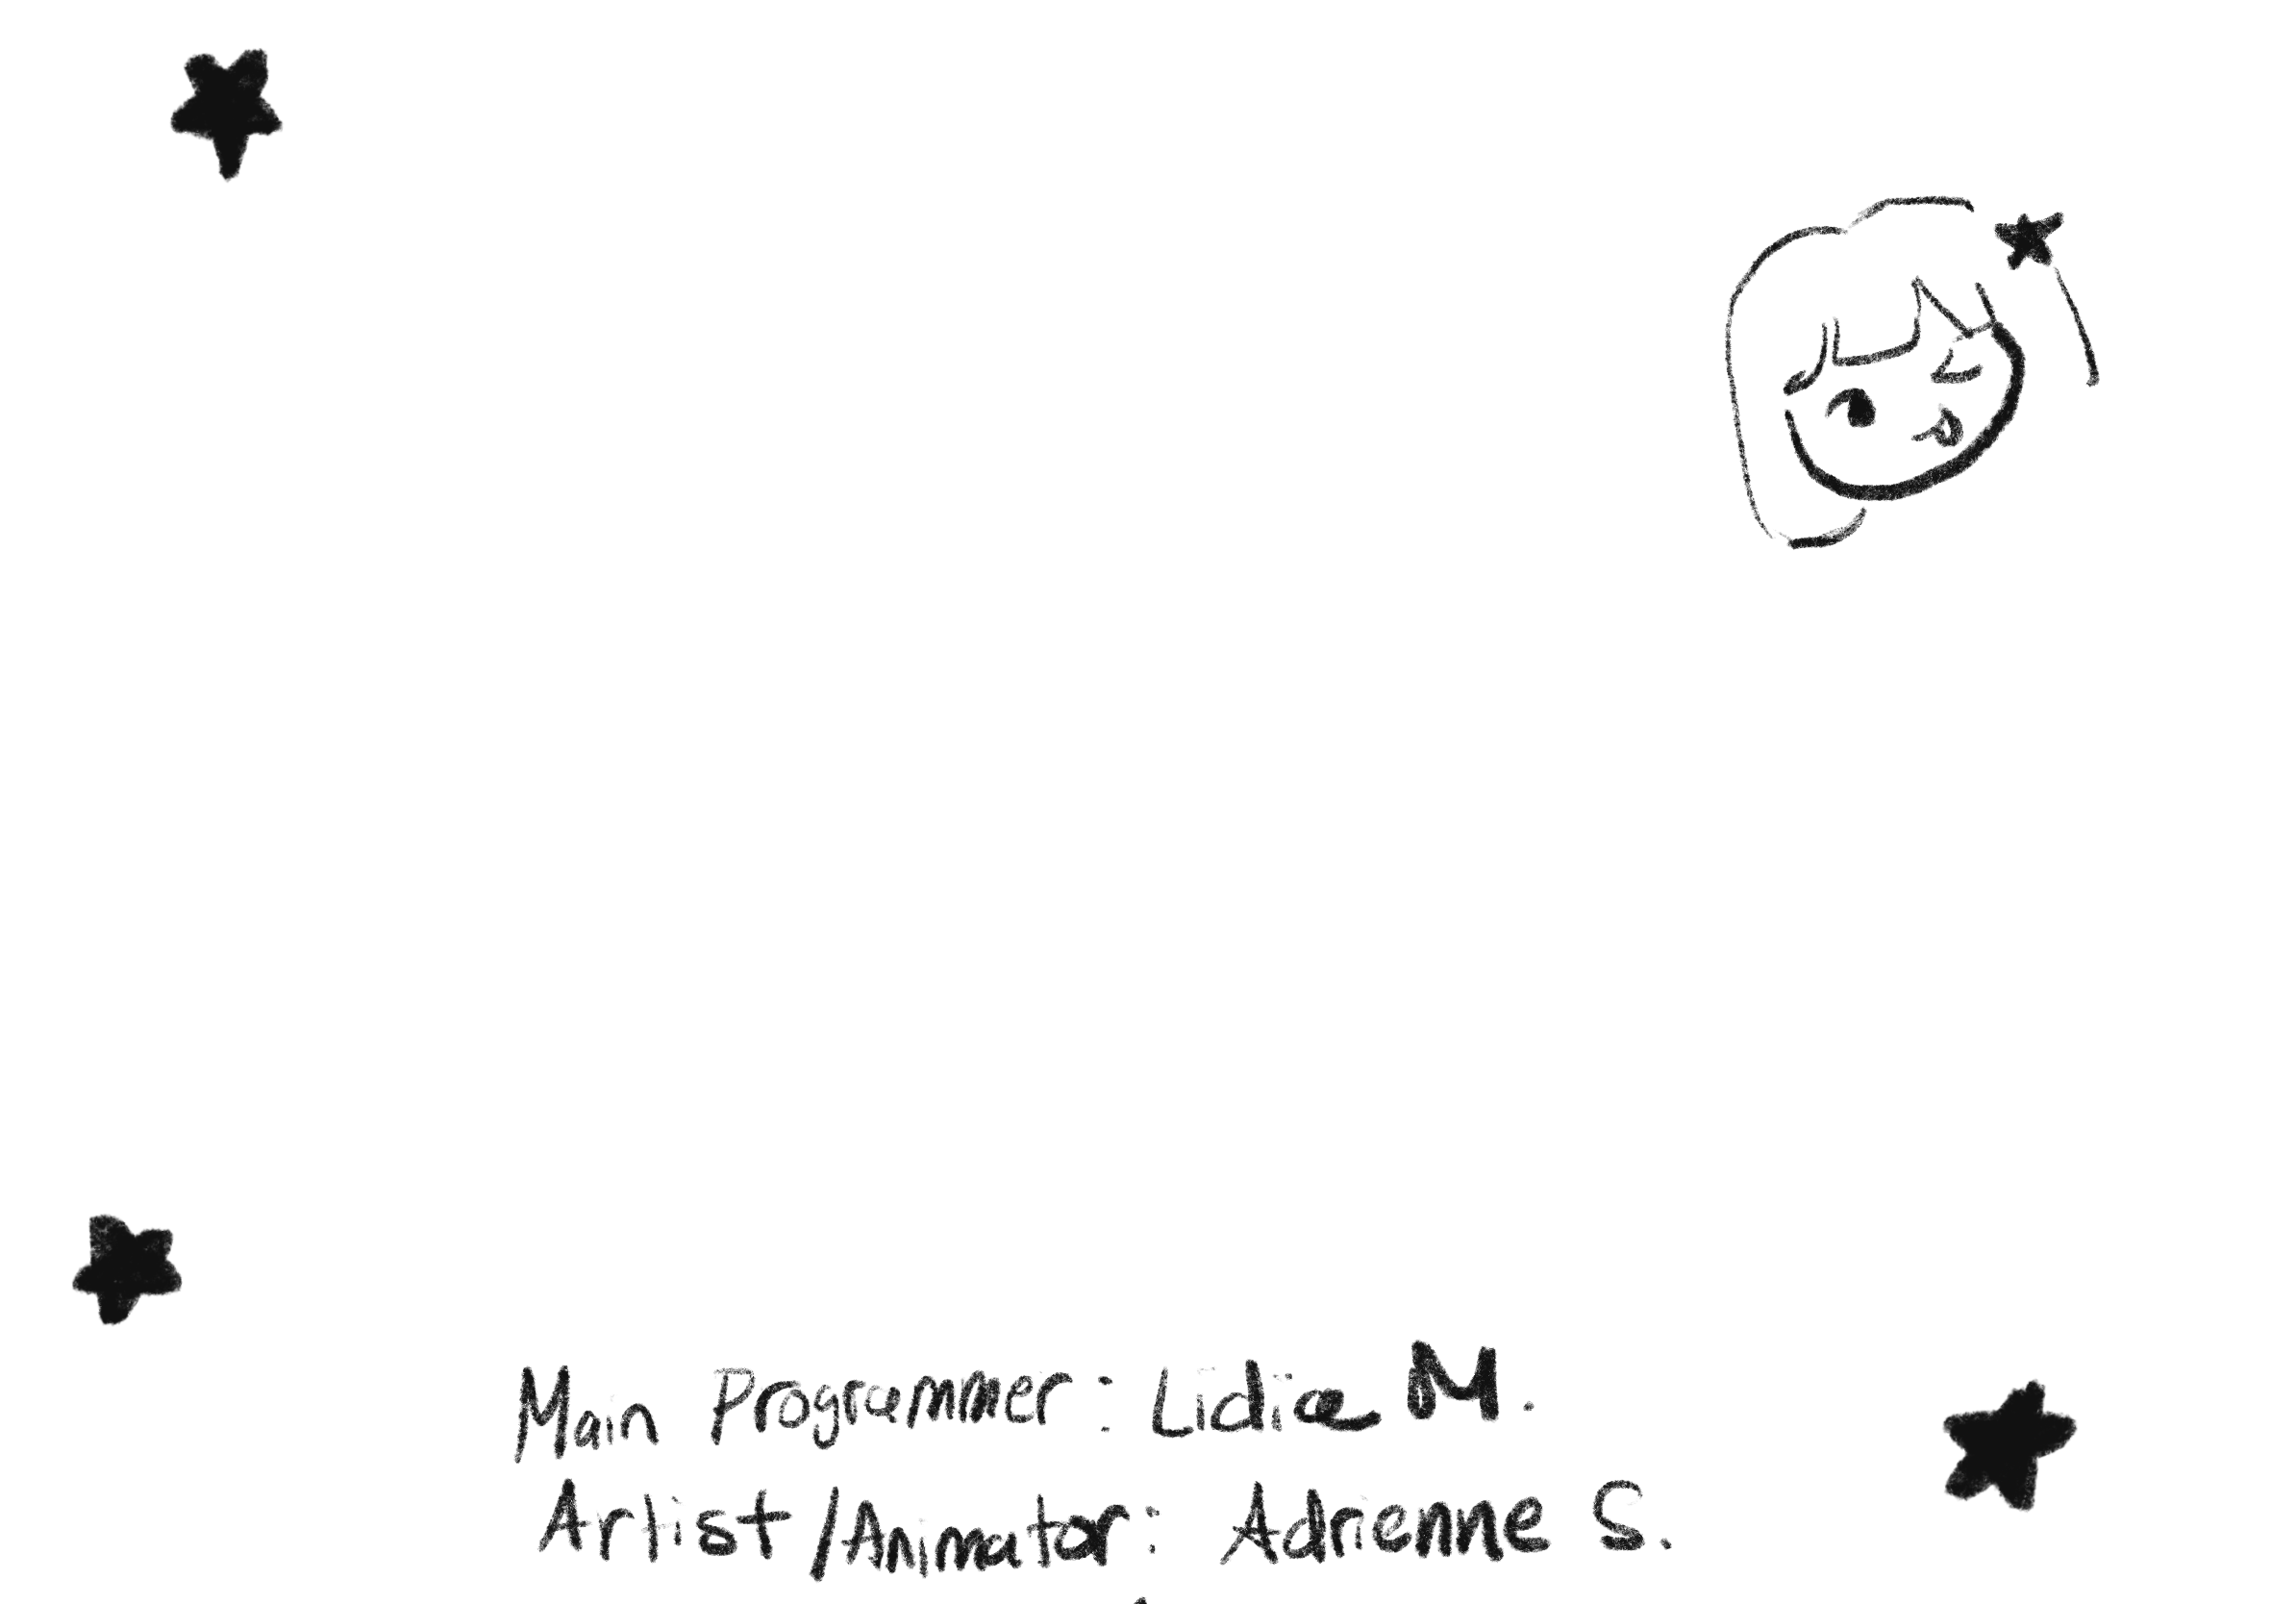 Main Programmer: Lidia M.
Artist/Animator: Adrienne S.